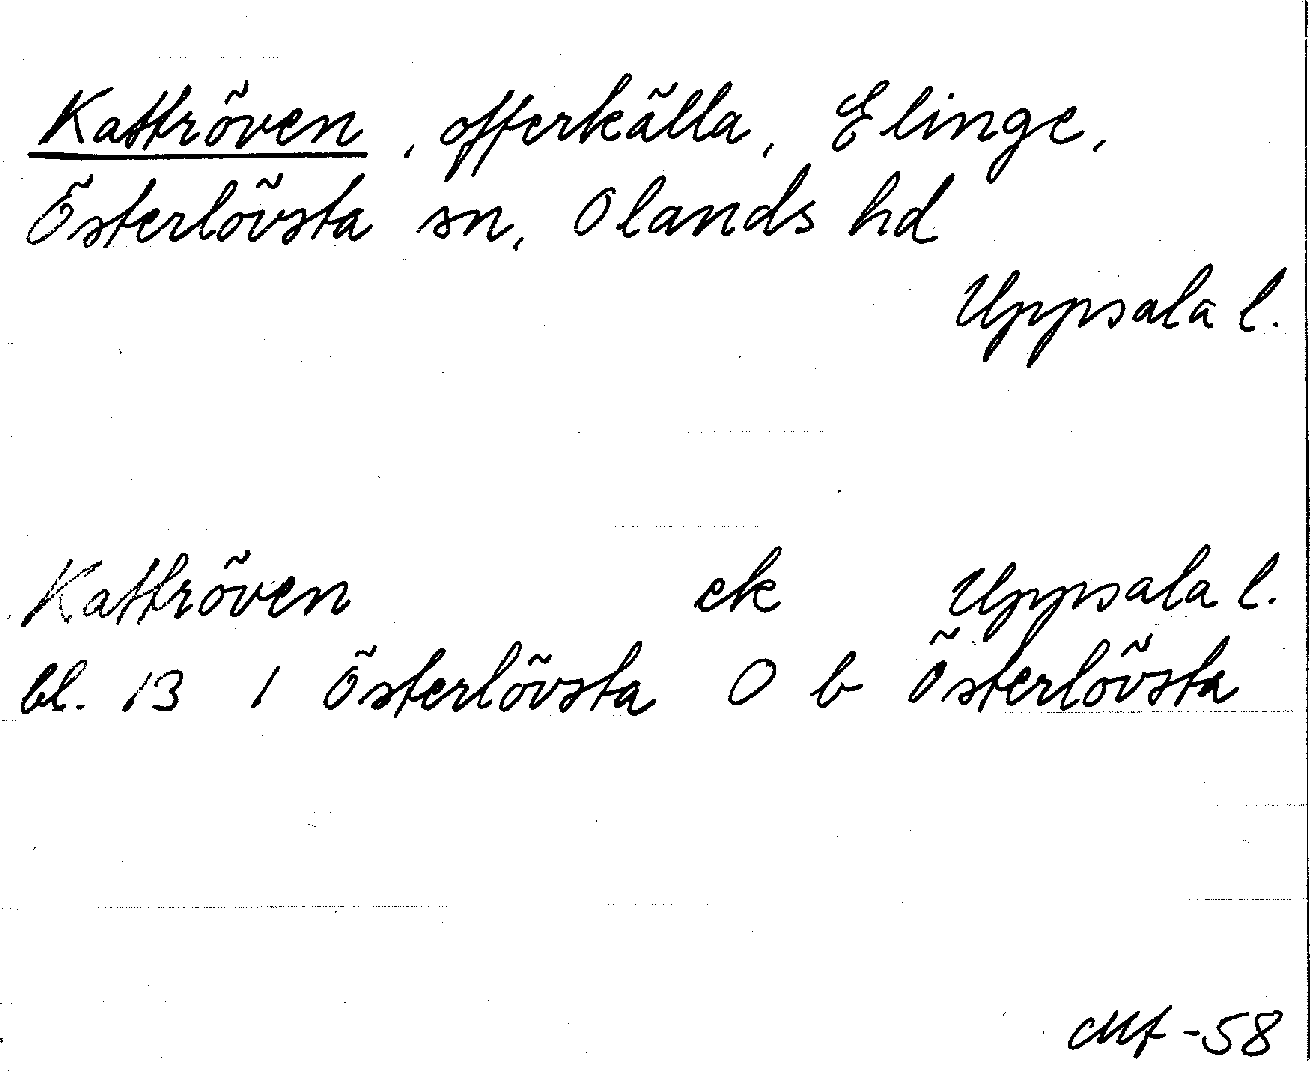 Kattröven, offerkälla, Elinge,
Österlövsta sn, Olands hd
Uppsala l.
Kattröven ek Uppsala l.
bl. 13 1 Österlövsta O b Österlövsta
-58